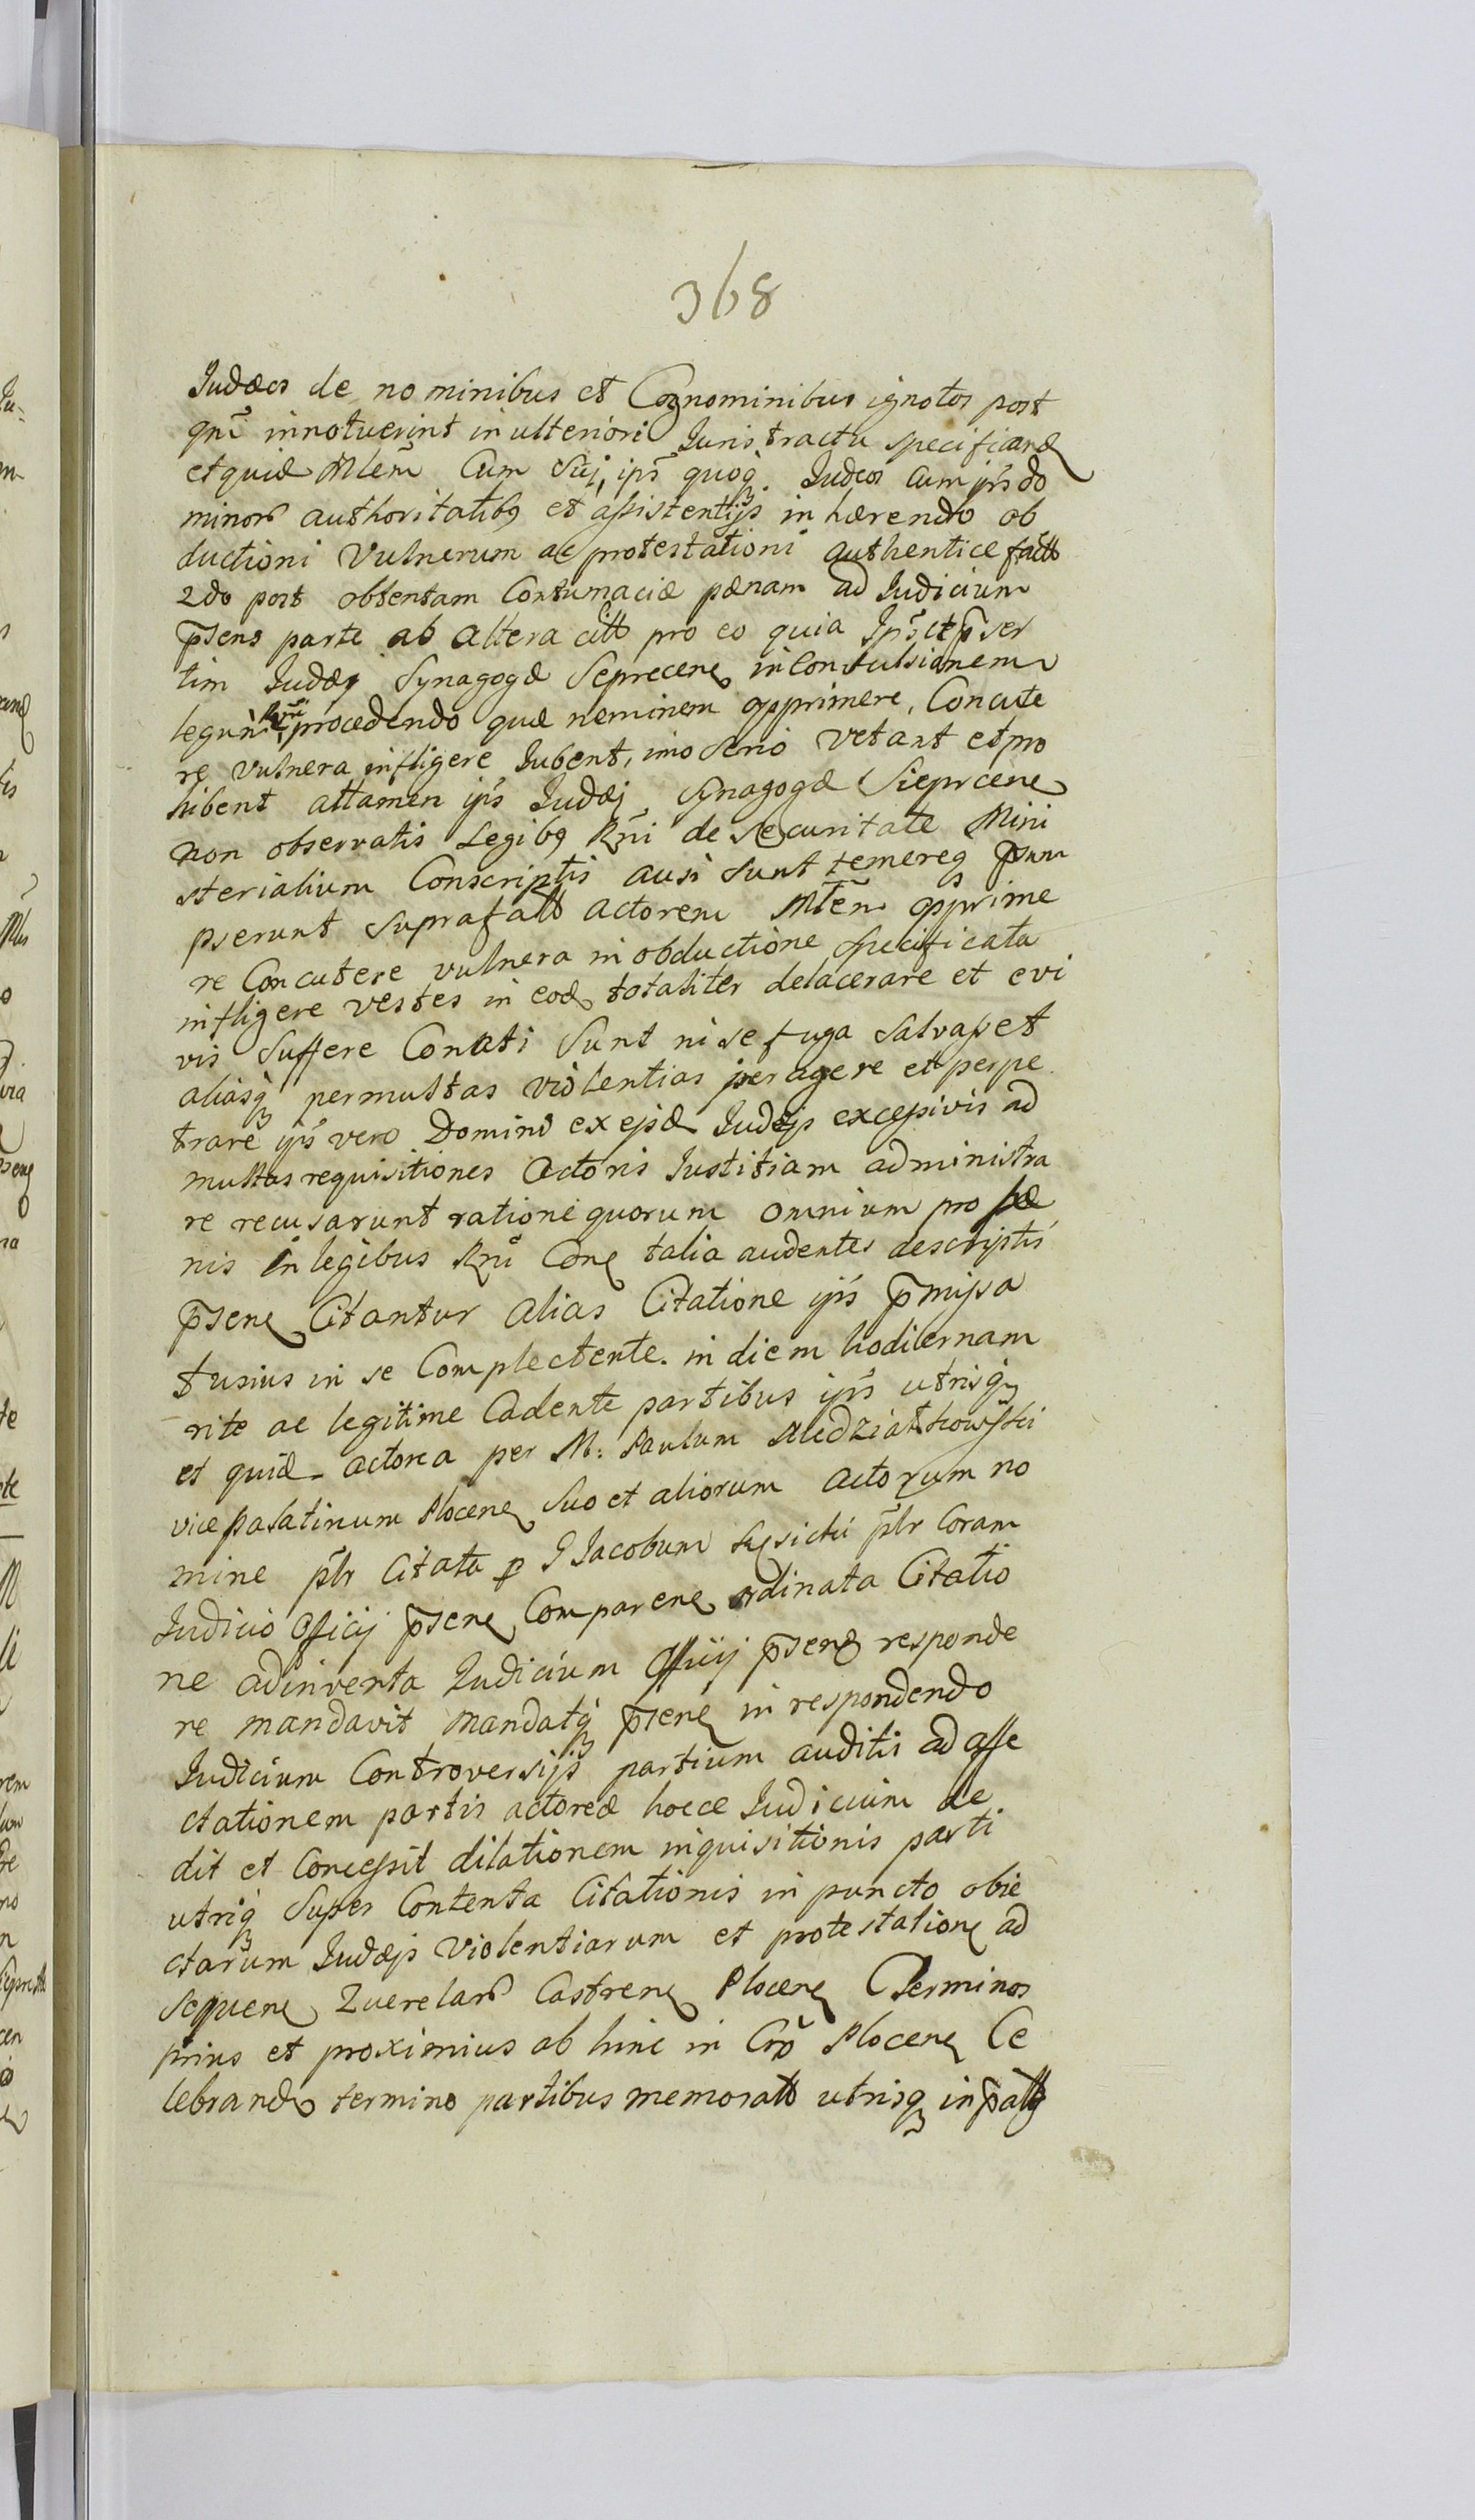 368
Judæos de nominibus et Cognominibus ignotos post
qm̃ innotuerint in ulteriori Juris tractu specificand
et quid Mlem̃ Cum Sui, ips̃ quoq Judæos cum ips̃ do
minor authoritatibq et assistentijs in hærendo ob
ductioni Vulnerum ac protestationi authentice factt
2do post obtentam Contumaciæ pænam ad Judicium
p̃sens parte ab altera citt pro eo quia Ips̃ et p̃ser
tim Judæj Synagogæ Seprecen in Convulsionem
legum Rgni procedendo quæ neminem opprimere, Concute
re Vulnera infligere Jubent, imo serio Vetant et pro
hibent attamen ips̃ Judæj Synagogæ Sieprcen
non observatis Legibq Rgni de Securitate Mini
sterialium Conscriptis ausi sunt temereq p̃sum
pserunt suprafatt actorem Mlem̃ opprime
re Concutere vulnera in obductione specificata
infligere vestes in eod totaliter delacerare et e vi
vis suffere Conati Sunt ni se fuga salvasset
aliasq permultas violentias peragere et perpe
trare ips̃ vero Domini ex ejsd Judæjs excessivis ad
multas requisitiones Actoris Justitiam administra
re recusarunt ratione quorum omnium pro pæ
nis in legibus Rgni Con talia audentes descriptis
p̃sen Citantur alias Citatione ips̃ p̃missa
fusius in se Complectente in diem hodiernam
rite ac legitime Cadente partibus ips̃ utrisq
et quid actorea per M: Paulum Niedziałkowski
vice palatinum Plocen Suo et aliorum actorum no
mine plr Citata p G Jacobum plr Coram
Judicio Officij p̃sen Comparen ordinata Citatio
ne adinventa Judicium Officij p̃sen responde
re mandavit Mandatq p̃sen in respondendo
Judicium Controversijs partium auditis ad affe
ctationem partis actoreæ hocce Judicium de
dit et Concessit dilationem inquisitionis parti
utriq Super Contenta Citationis in puncto obie
ctarum Judæjs Violentiarum et protestation ad
Sequen Querelar Castren Plocen Terminos
prius et proximius ab hinc in Cro Plocen Ce
lebrand termino partibus memoratt utrisq in p̃att